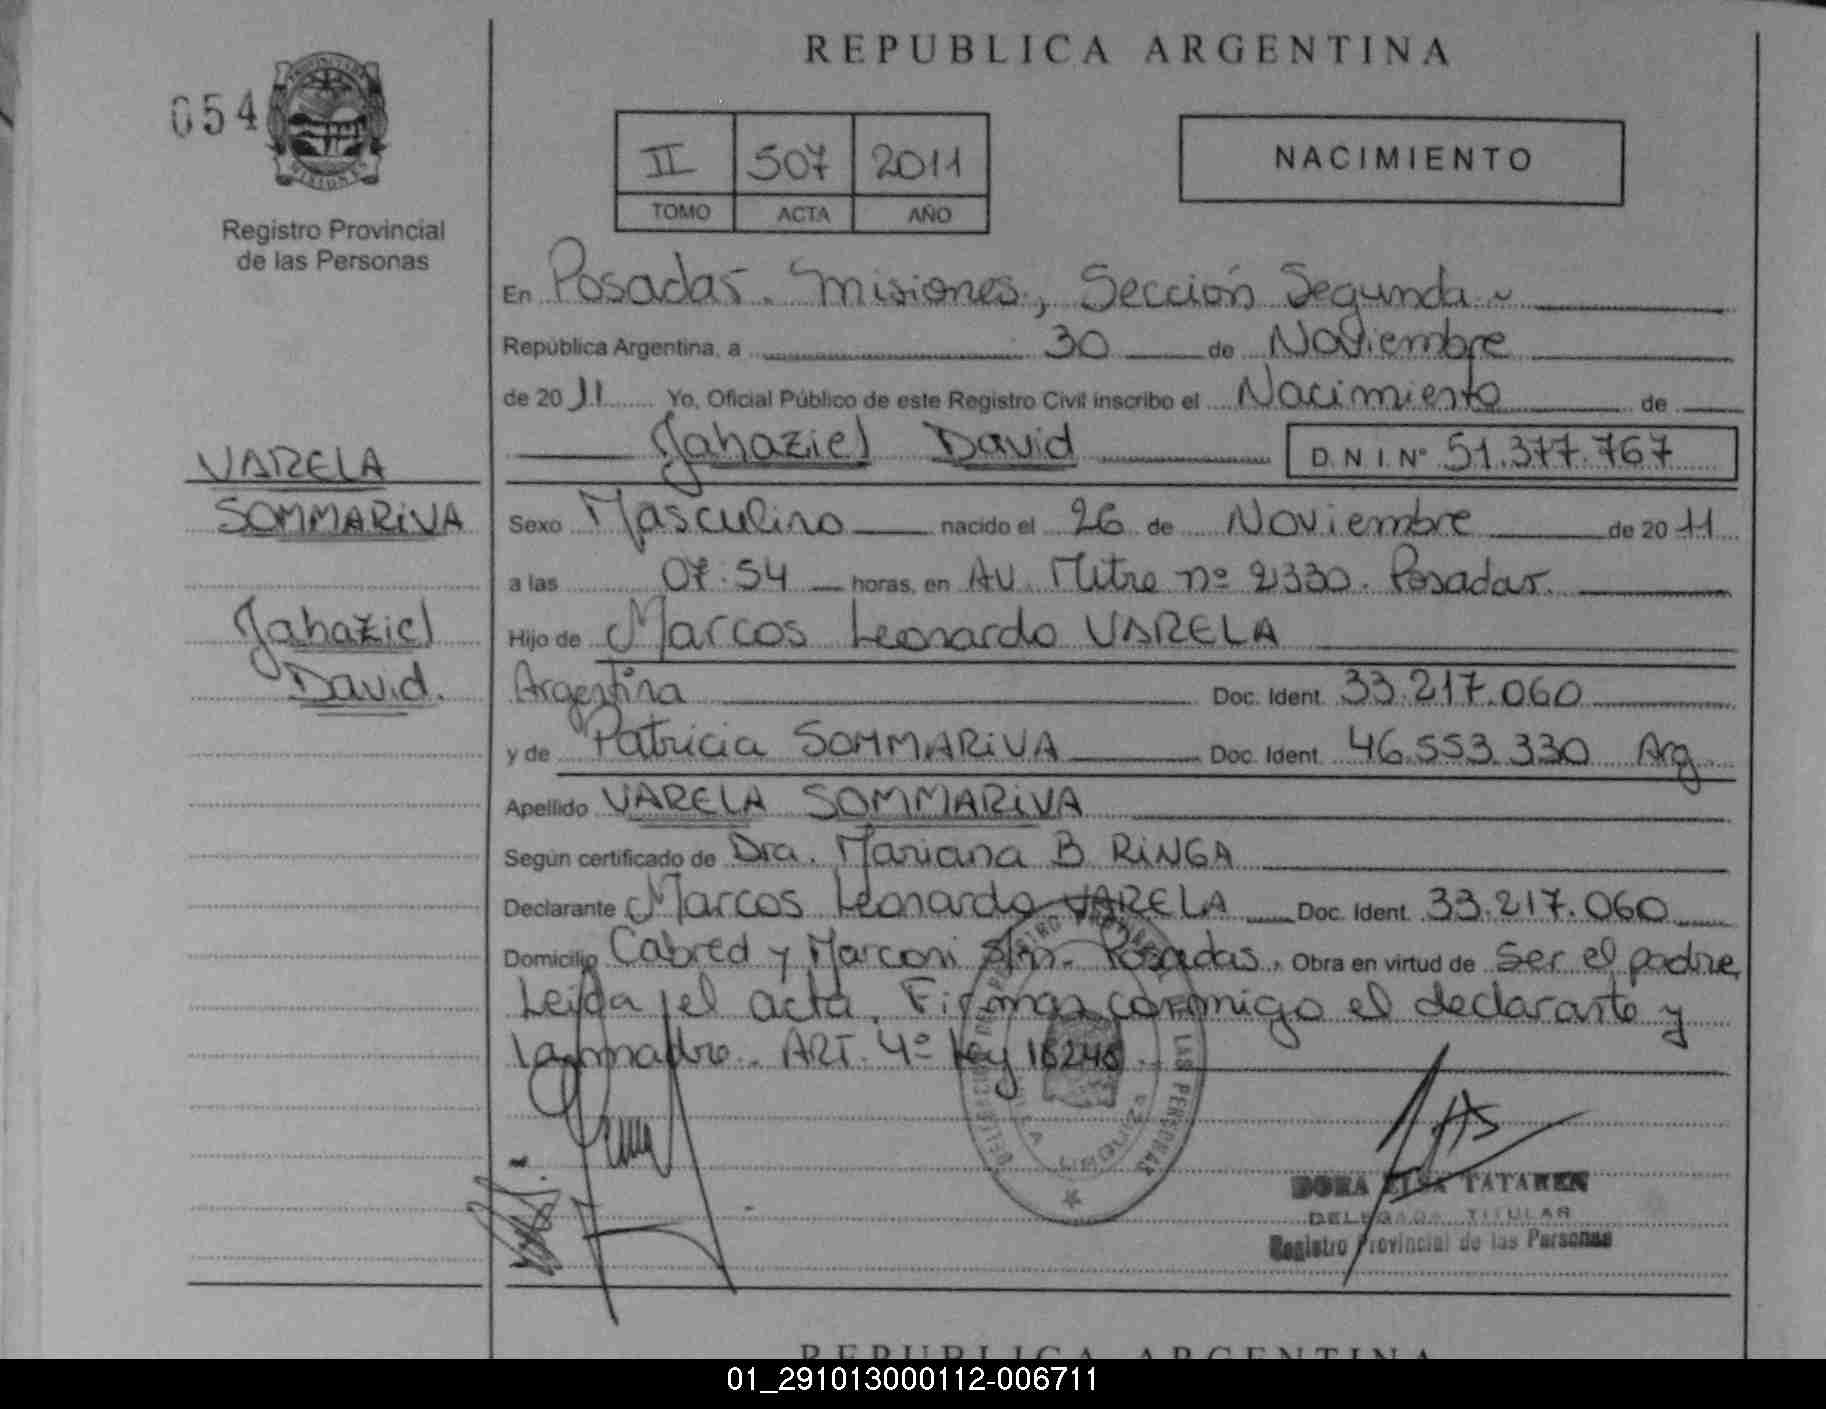 REPUBLICA ARGENTINA
054
Registro Provincial
de las Personas
II 507 2011
TOMO ACTA AÑO
NACIMIENTO
En Posadas. Misiones, Sección Segunda
República Argentina, a 30 de Noviembre
de 2011 Yo, Oficial Público de este Registro Civil inscribo el Nacimiento de
Jahaziel David D.N.I.Nº 51.377.767
VARELA
SOMMARIVA
Jahaziel
David.
Sexo Masculino nacido el 26 de Noviembre de 2011
a las 07:54 horas, en AV. Mitre nº 2330. Posadas.
Hijo de Marcos Leonardo VARELA
Argentina Doc. Ident. 33.217.060
y de Patricia SOMMARIVA Doc. Ident. 46.553.330 Arg
Apellido VARELA SOMMARIVA
Según certificado de Dra. Mariana B RINGA
Declarante Marcos Leonardo VARELA Doc. Ident. 33.217.060
Domicilio Cabred y Marconi s/n. Posadas. Obra en virtud de Ser el padre
Leida el acta. Firman conmigo el declarante y
la madre. ART. 4º Ley 18248.
DORA ELSA
DELEGADA TITULAR
Registro Provincial de las Personas
REPUBLICA ARGENTINA
01_291013000112-006711